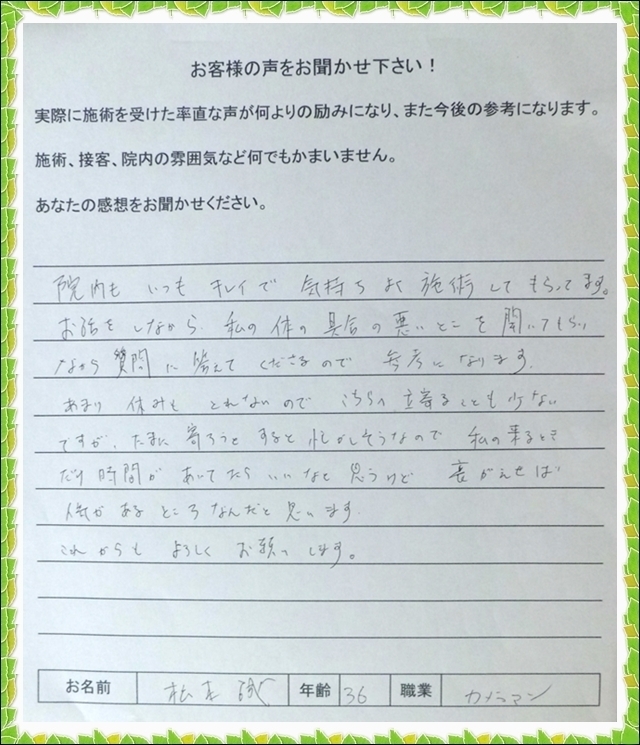 お客様の声をお聞かせ下さい！
実際に施術を受けた率直な声が何よりの励みになり、また今後の参考になります。
施術、接客、院内の雰囲気など何でもかまいません。
あなたの感想をお聞かせください。
院内も いつも キレイで 気持ちよく 施術してもらってます。
お話をしながら、私の体の具合の悪いとこを聞いてもらい
ながら質問に答えてくださるので 参考になります。
あまり 休みも とれないので こちらへ 立寄ることも少ない
ですが、たまに寄ろうとすると忙がしそうなので 私の来るとき
だけ時間があいてたらいいなと思うけど 裏がえせば
人気があるところなんだと思います。
これからも よろしく お願いします。
お名前 松本 誠 年齢 36 職業 カメラマン